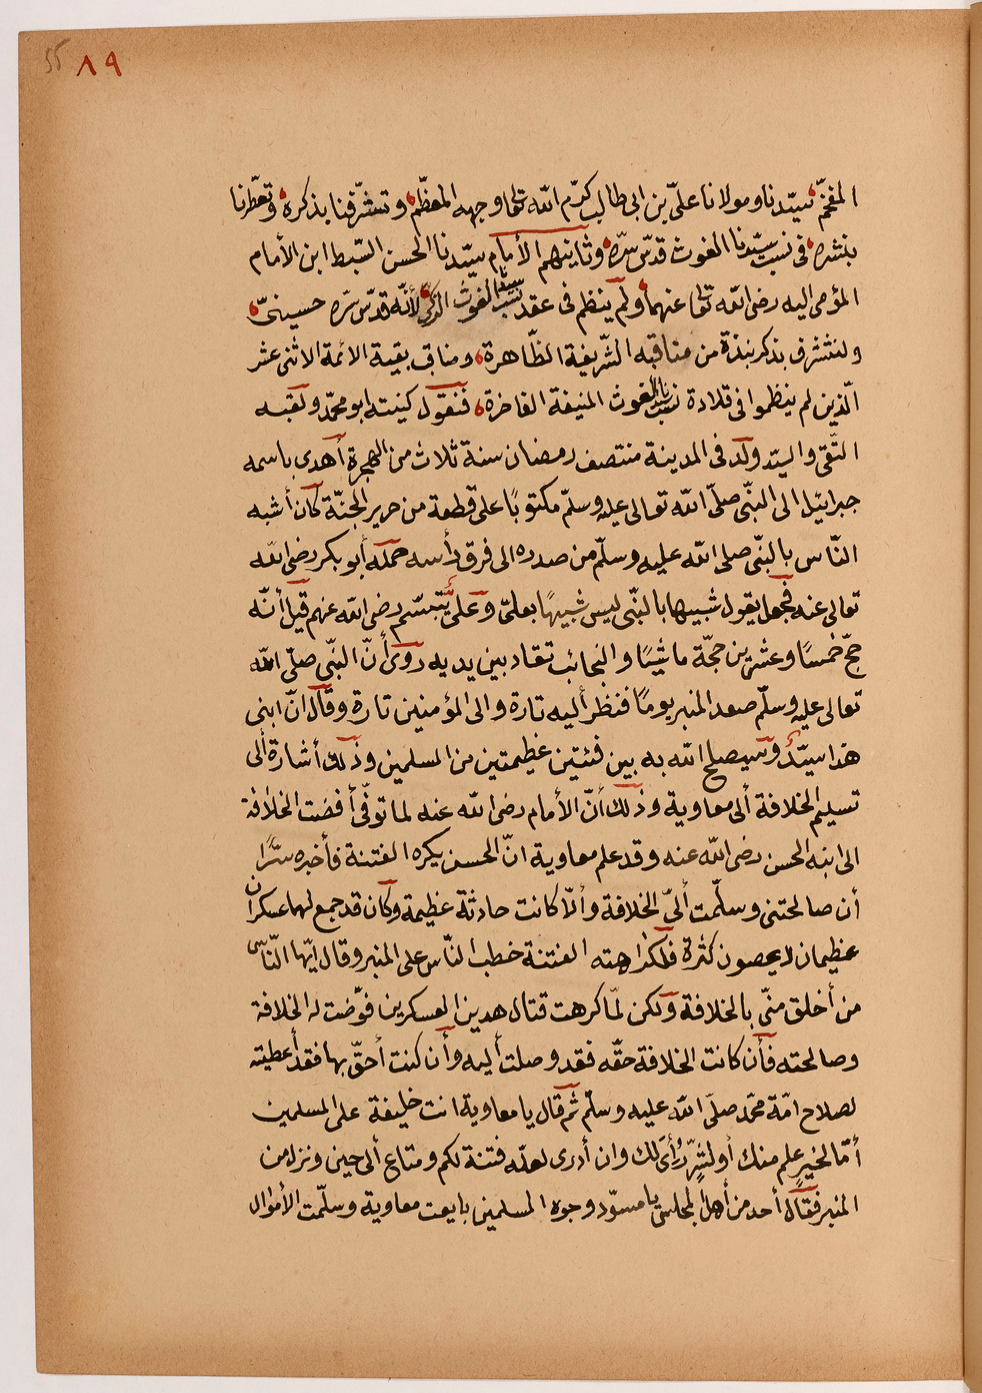 ٨٩
المفخّم سيّدنا ومولانا علىّ بن ابى طالب كرّم الله تعالى وجهه المعظّم وتشرّفنا بذكره وتعطّرنا
بنشره فى نسب سيّدنا الغوث قدّس سرّه وثانيهم الأمام سيّدنا الحسن السّبط ابن الأمام
المؤمى اليه رضى الله تعالى عنهما ولم ينظم فى عقد نسب الغوث الزكىّ لأنّه قدّس سرّه حسينىّ
ولنتشرف بذكر نبذة من مناقبه الشّريفة الظّاهرة ومناقب بقية الائمة الاثنى عشر
الّذين لم ينظموا فى قلادة نسب الغوث المنيفة الفاخرة فنقول كنيته ابو محمّد ولقبه
التّقى والسيّد ولد فى المدينة منتصف رمضان سنة ثلاث من الهجرة أهدى باسمه
جبرائيل الى النبّى صلّى الله تعالى عليه وسلّم مكتوبًا على قطعة من حرير الجنّة كان أشبه
النّاس بالنبّى صلى الله عليه وسلّم من صدره الى فرق رأسه حمله أبو بكر رضى الله
تعالى عنه فجعل يقول شبيها بالنبّى ليس شبيهًا بعلىّ وعلىّ يتبسّم رضى الله عنهم قيل أنّه
حجّ خمسًا وعشرين حجّة ماشيًا والنجائب تقاد بين يديه روى أنّ النبّى صلّى الله
تعالى عليه وسلّم صعد المنبر يومًا فنظر أليه تارة والى المؤمنين تارة وقال انّ ابنى
هذا سيّدٌ وسيصلح الله به بين فئتين عظيمتين من المسلمين وذلك أشارة ألى
تسليم الخلافة ألى معاوية وذلك أنّ الأمام رضى الله عنه لما توفّى أفضت الخلافة
الى ابنه الحسن رضى الله عنه وقد علم معاوية انّ الحسن يكره الفتنة فأخبره سرًّا
أن صالحتنى وسلّمت ألىّ الخلافة وألّا كانت حادثة عظيمة وكان قد جمع لهما عسكران
عظيمان لايحصون كثرة فلكراهته الفتنة خطب النّاس على المنبر وقال ايّها النّاس
من أخلق منّى بالخلافة ولكن لمّا كرهت قتال هدين العسكرين فوّضت له الخلافة
وصالحته فأن كانت الخلافة حقّه فقد وصلت أليه وأن كنت أحقّ بها فقد أعطيته
لصلاح امّة محمّد صلّى الله عليه وسلّم ثم قال يا معاوية انت خليفة على المسلمين
أمّا لخيرٍ علم منك أو لشرٍّ رُأى لك وان أدرى لعلّه فتنة لكم ومتاع ألى حين ونزل من
المنبر فقال أحد من أهل المجلس يا مسوّد وجوه المسلمين بايعت معاوية وسلّمت الأموال